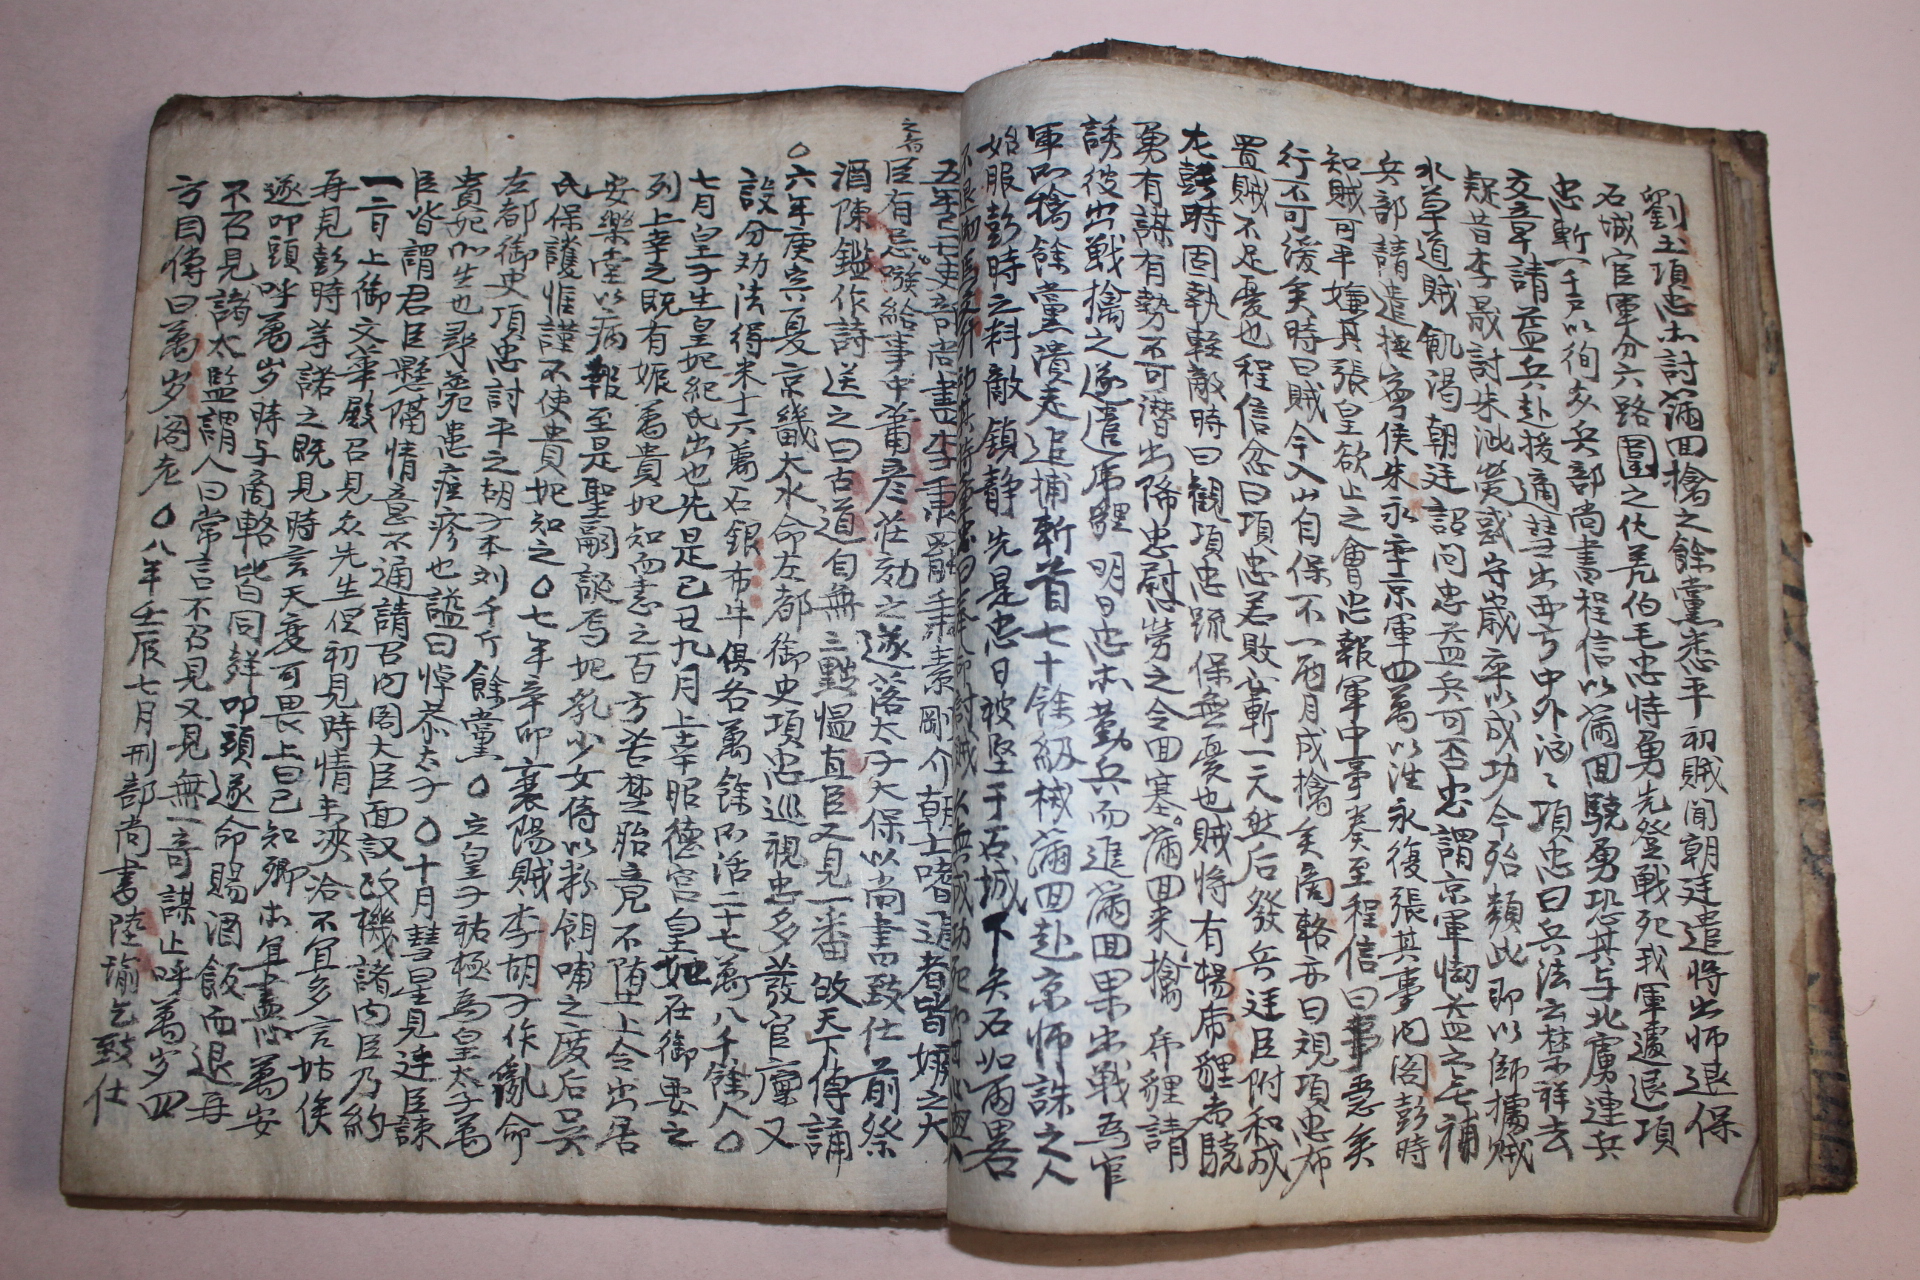 劉玉項忠亦討滿四擒之餘黨悉平初賊聞朝廷遣將出師退保
石城官軍分六路圍之伏羌伯毛忠恃勇先登戰死我軍遽退項
忠斬一千戶以徇衆兵部尚書程信以滿四驍勇恐其与北虜連兵
交章請益兵赴援適彗出西方中外洶〻項忠曰兵法云禁祥去
疑昔李晟討朱泚熒惑守歲卒以成功今殆類此卽以師據賊
水草道賊飢渴朝廷詔问忠益兵可否忠謂京軍怯益之無補
兵部請遣撫寧侯朱永率京軍四萬以往永復張其事内阁彭時
知賊可平嫌其張皇欲止之會忠報軍中事奏至程信曰事急矣
行不可緩矣時曰賊今入山自保不一兩月成擒矣商輅亦曰視項忠布
置賊不足憂也程信忿曰項忠若敗必斬一元然后發兵廷臣附和咸
尤彭時固執輕敵時曰觀項忠疏保無憂也賊將有楊虎貍者驍
勇有謀有勢不可潜出降忠慰勞之令回塞滿四来擒虎貍請
誘彼出戰擒之遂遣虎貍明日忠亦勒兵而進滿四果出戰爲官
軍所擒餘黨潰走追捕斬首七十餘級械滿四赴京師誅之人
始服彭時之料敵鎮静先是忠日被堅于石城下矢石如雨畧
五年己丑吏部尚書李秉罷秉素剛介朝士嗜進者皆嫉之大
之者
臣有忌嗾給事中蕭彦庄劾之遂落太子太保以尚書致仕前祭
酒陳鑑作詩送之曰古道自無三黜慍直臣又見一番故天下傳誦
〇六年庚寅夏京畿大水命左都御史項忠巡視忠多發官廩又
設分劝法得米十六萬石銀布牛俱各萬餘所活二十七萬八千餘人〇
七月皇子生皇妃紀氏出也先是己丑九月上幸昭德宮皇妃在御妻之
列上幸之旣有娠萬貴妃知而恚之百方苦楚胎竟不堕上令出居
安樂堂以病報至是聖嗣誕焉妃乳少女侍以粉餌哺之废后吳
氏保護惟謹不使貴妃知之〇七年辛卯襄陽賊李胡子作亂命
左都御史項忠討平之胡子本刘千斤餘黨〇立皇子祐極爲皇太子萬
貴妃所生也尋薨患痘疹也諡曰悼恭太子〇十月彗星見廷臣諫
臣皆謂君臣懸隔情意不通請召内阁大臣面议政機諸内臣乃約
一二日上御文華殿召見众先生但初見時情未浹洽不宜多言姑俟
再見彭時等諾之旣見時言天变可畏上曰已知卿亦宜盡心萬安
遂叩頭呼萬岁時与商輅皆同聲叩頭遂命賜酒飯而退再
不召見諸太監謂人曰常言不召見又見無一奇謀止呼萬岁四
方因傳曰萬岁阁老〇八年壬辰七月刑部尚書陸瑜乞致仕